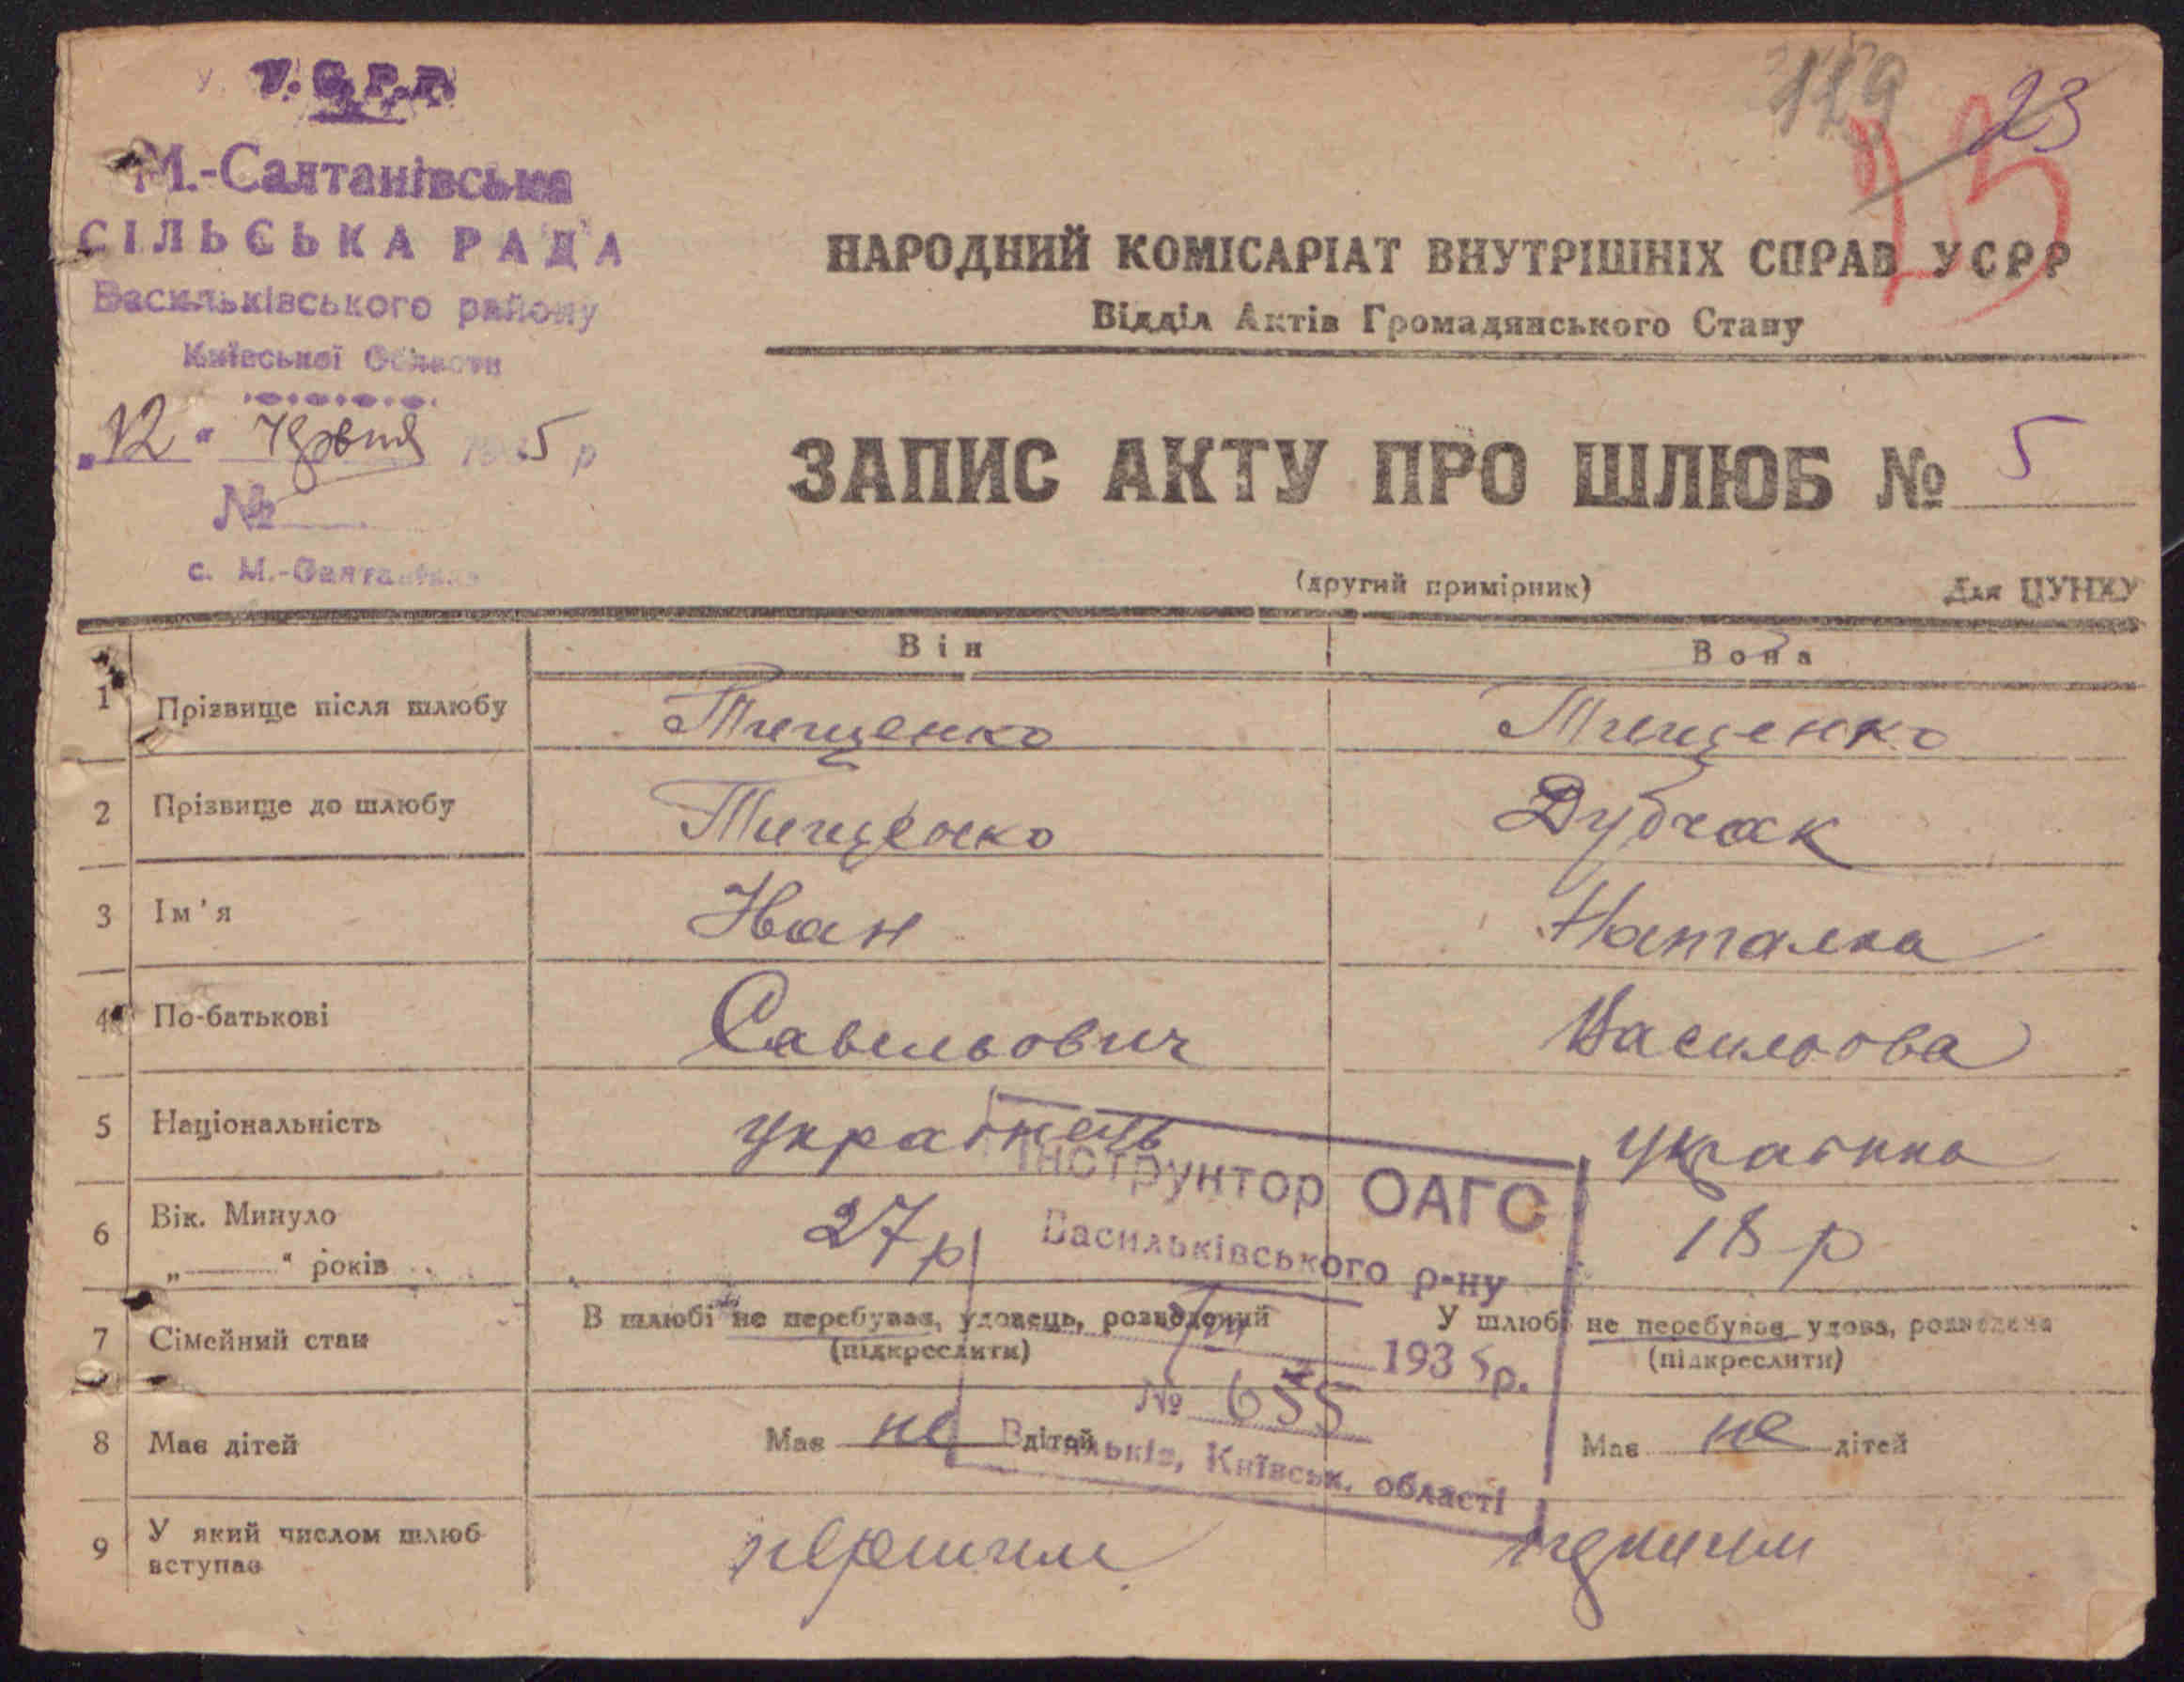 У.С.Р.Р.
М.-Салтанівська
СІЛЬСЬКА РАДА
Васильківського району
Київської Области
„12“ Червня 1935 р
№
с. М.-Салтанівка
129
23
23
НАРОДНИЙ КОМІСАРІАТ ВНУТРІШНІХ СПРАВ УСРР
Відділ Актів Громадянського Стану
ЗАПИС АКТУ ПРО ШЛЮБ № 5
(другий примірник) Для ЦУНХУ
Він Вона
1 Прізвище після шлюбу Тищенко Тищенко
2 Прізвище до шлюбу Тищенко Дубчак
3 Ім'я Іван Наталка
4 По-батькові Савельович Васильова
5 Національність українець українка
6 Вік. Минуло 27 р 18 р
„——“ років
7 Сімейний стан В шлюбі не перебував, удовець, розведений У шлюбі не перебував удова, розведена
(підкреслити) (підкреслити)
8 Має дітей Має не дітей Має не дітей
9 У який числом шлюб вступає першим першим
Інструктор ОАГС
Васильківського р-ну
1935р.
№ 655
Васильків, Київськ. області